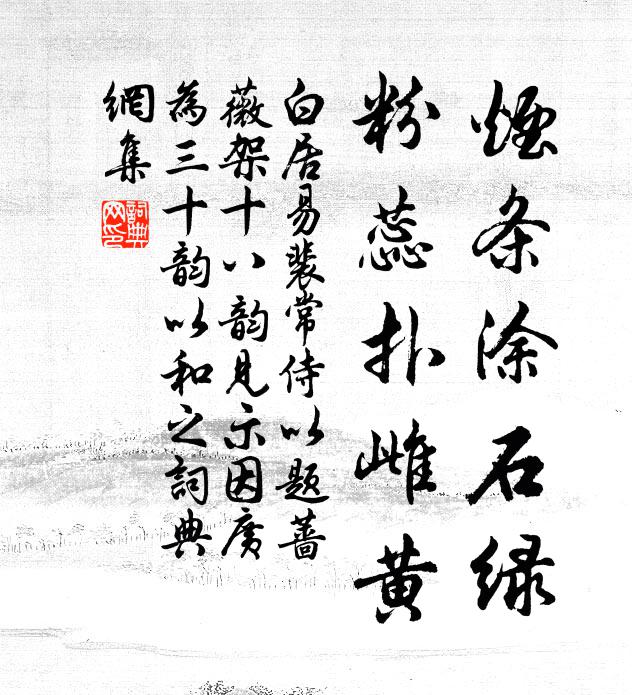 烟条涂石绿
粉蕊扑雌黄
白居易裴常侍以题蔷
薇架十八韵见示因广
为三十韵以和之词典
網集
詞典
网印